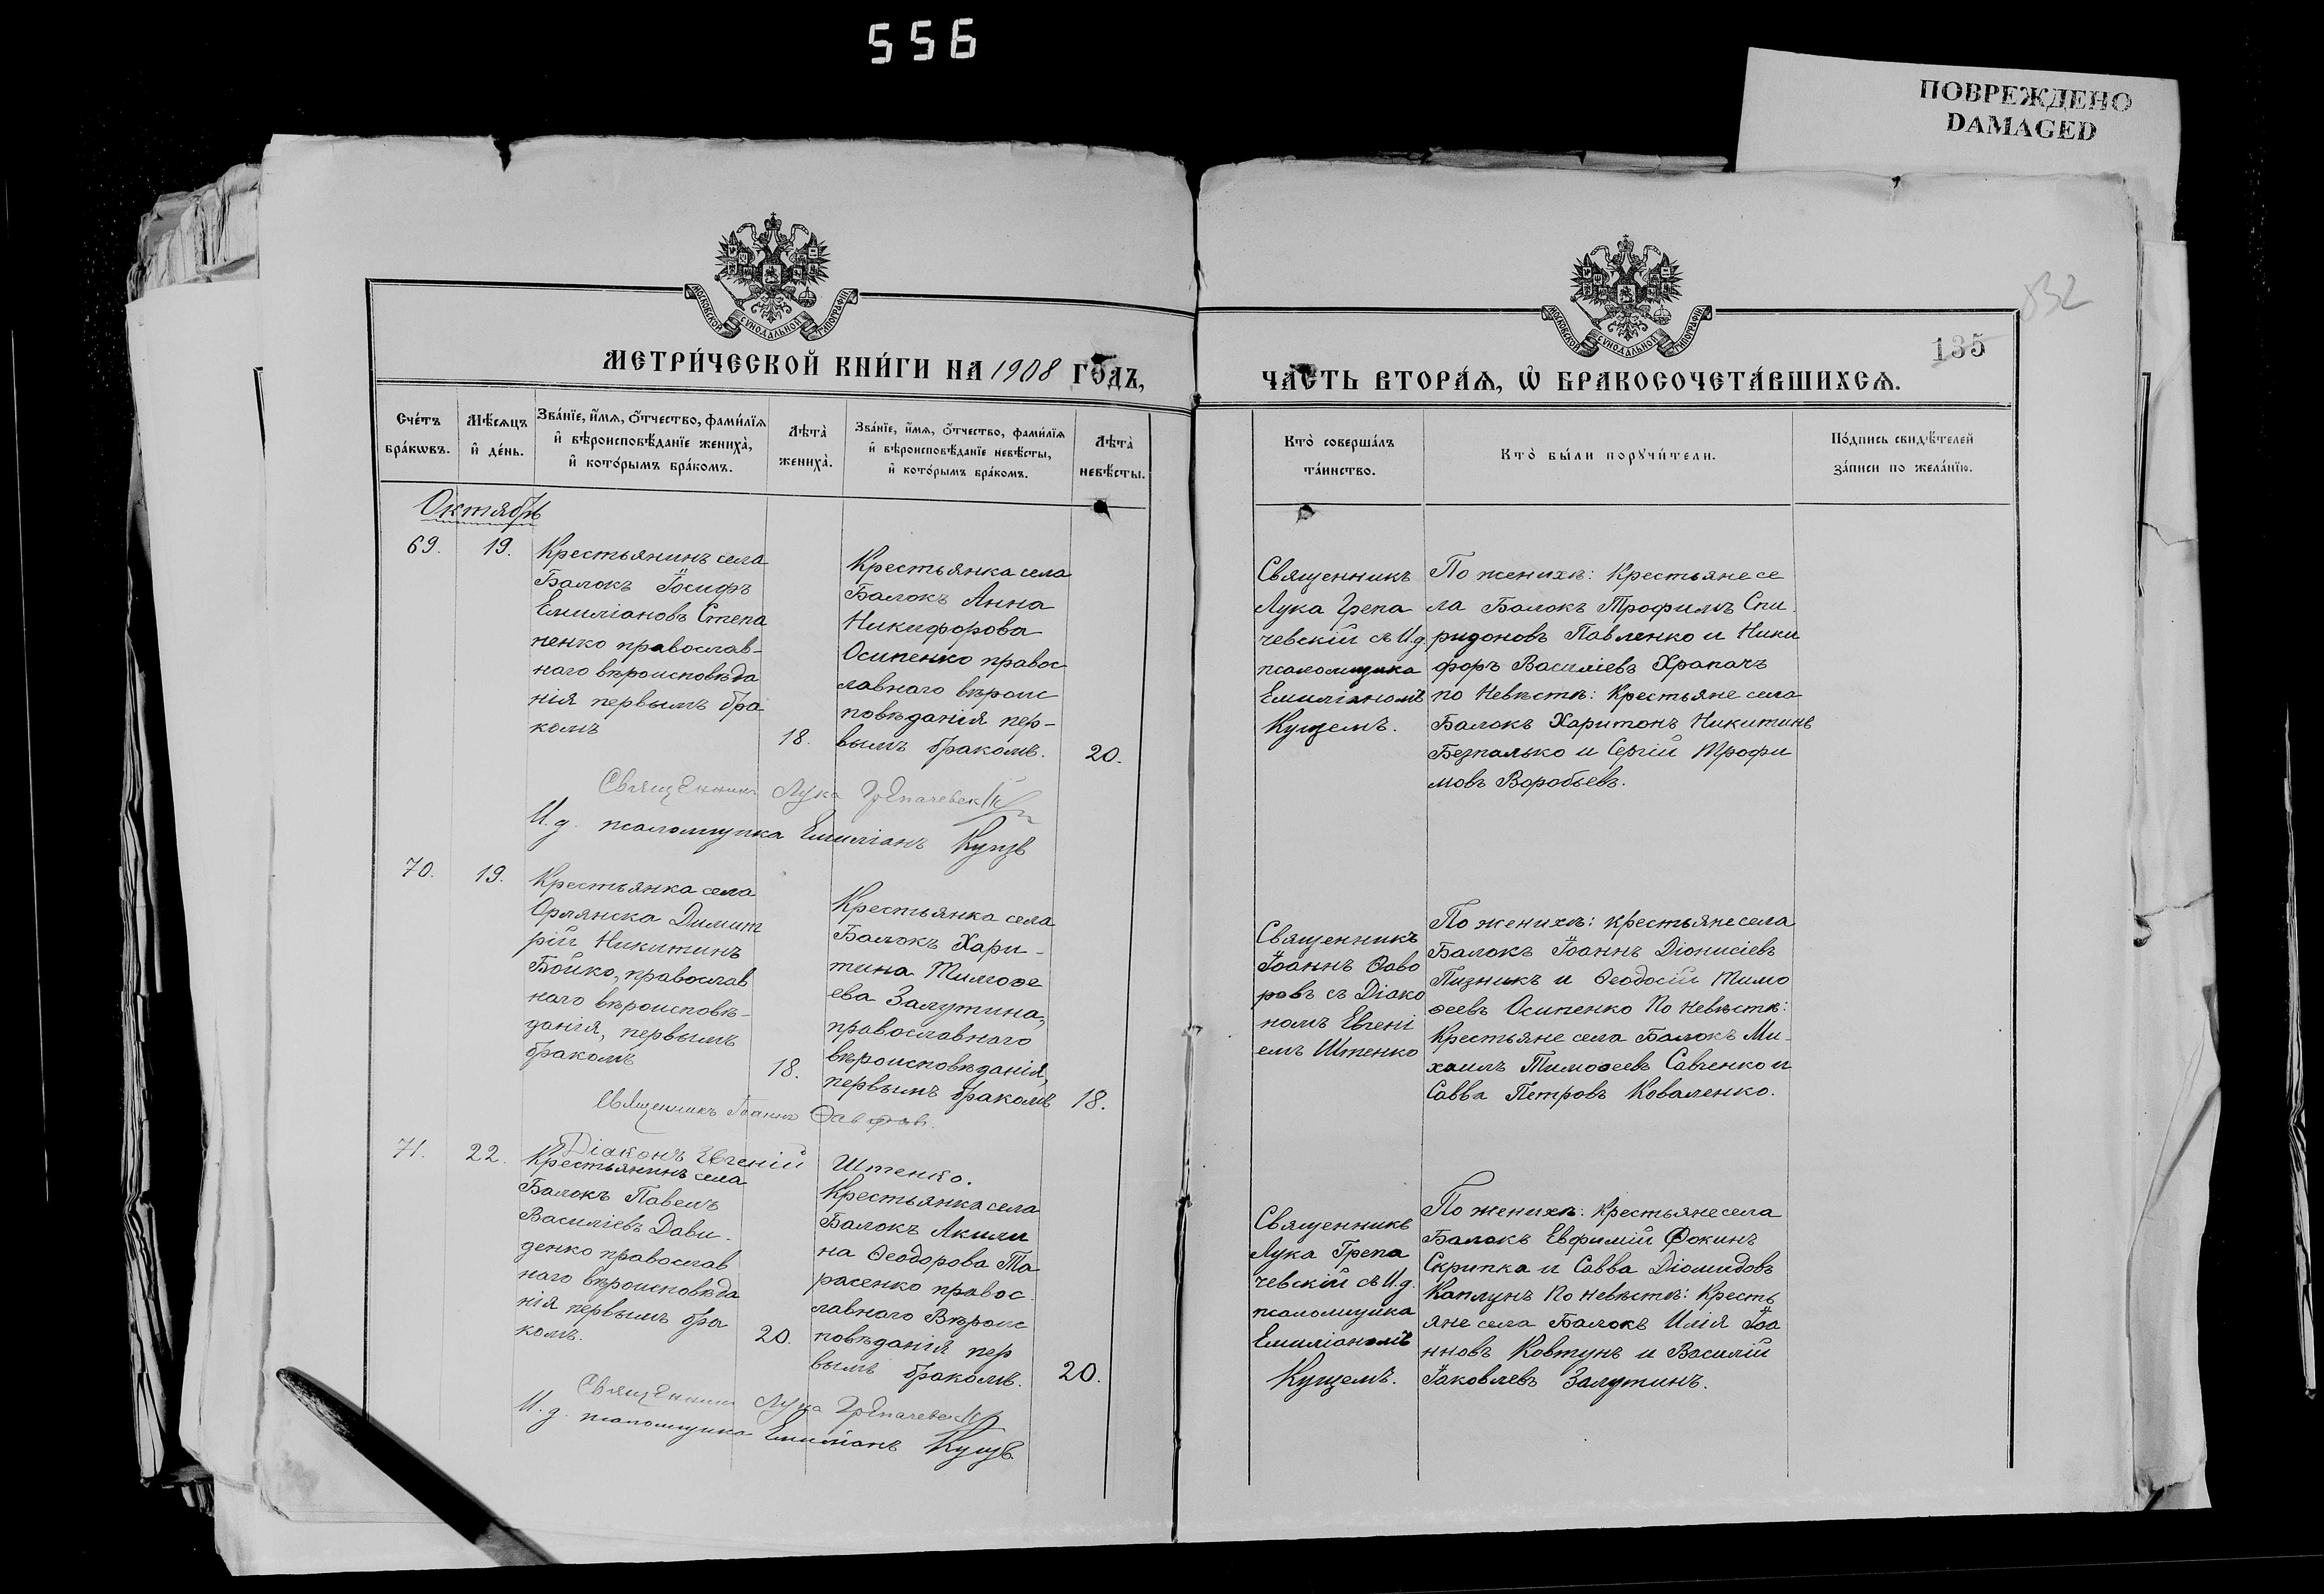 556
ПОВРЕЖДЕНО
DAMAGED
532
135
МОСКОВСКОЙ СѴНОДАЛЬНОЙ ТИПОГРАФІИ
МОСКОВСКОЙ СѴНОДАЛЬНОЙ ТИПОГРАФІИ
МЕТРИ́ЧЕСКОЙ КНИ́ГИ НА 1908 ГО́ДЪ,
ЧА́СТЬ ВТОРА́Я, Ѡ БРАКОСОЧЕТА́ВШИХСѦ.
Сче́тъ
бра́кωвъ.
Мѣ́сяцъ
и҆ де́нь.
Зва́нїе, и҆́мѧ, о҆́тчество, фами́лїѧ
и҆ вѣроисповѣ́данїе жениха̀,
и҆ кото́рымъ бра́комъ.
Лѣта̀
жениха̀.
Зва́нїе, и҆́мѧ, о҆́тчество, фами́лїѧ
и҆ вѣроисповѣ́данїе невѣ́сты,
и҆ кото́рымъ бра́комъ.
Лѣта̀
невѣ́сты.
Кто̀ соверша́лъ
та́инство.
Кто̀ бы́ли порꙋчи́тели.
По́дпись свидѣ́телей
за́писи по жела́нїю.
Октябрь
69.
19.
Крестьянинъ села
Балокъ Іосифъ
Емиліановъ Степа
ненко православ-
наго вѣроисповѣда
нія первымъ бра
комъ
18.
Крестьянка села
Балокъ Анна
Никифорова
Осипенко правос
лавнаго вѣроис
повѣданія пер-
вымъ бракомъ.
20.
Священникъ
Лука Грепа
чевскій съ И.д.
псаломщика
Емиліаномъ
Кущемъ.
По женихѣ: Крестьяне се
ла Балокъ Трофимъ Спи
ридоновъ Павленко и Ники
форъ Василіевъ Храпачъ
по невѣстѣ: Крестьяне села
Балокъ Харитонъ Никитинъ
Безпалько и Сергій Трофи
мовъ Воробьевъ.
Священникъ Лука Грепачевскій
И.д. псаломщика Емиліанъ Кущъ
70.
19.
Крестьянка села
Орлянска Димит
рій Никитинъ
Бойко, православ
наго вѣроисповѣ-
данія, первымъ
бракомъ
18.
Крестьянка села
Балокъ Хари-
тина Тимоѳе
ева Залутина,
православнаго
вѣроисповѣданія,
первымъ бракомъ
18.
Священникъ
Іоаннъ Ѳаво
ровъ съ Діако
номъ Евгені
емъ Штенко
По женихѣ: крестьяне села
Балокъ Іоаннъ Діонисіевъ
Пизникъ и Ѳеодосій Тимо
ѳеевъ Осипенко По невѣстѣ:
Крестьяне села Балокъ Ми-
хаилъ Тимоѳеевъ Савченко и
Савва Петровъ Коваленко.
Священникъ Іоаннъ Ѳаворовъ.
Діаконъ Евгеній Штенко.
71.
22.
Крестьянинъ села
Балокъ Павелъ
Василіевъ Дави-
денко православ
наго вѣроисповѣда
нія первымъ бра
комъ.
20.
Крестьянка села
Балокъ Акили
на Ѳеодорова Та
расенко правос
лавнаго Вѣроис
повѣданія пер
вымъ бракомъ.
20.
Священникъ
Лука Грепа
чевскій съ И.д.
псаломщика
Емиліаномъ
Кущемъ.
По женихѣ: крестьяне села
Балокъ Евфимій Фокинъ
Скрипка и Савва Діомидовъ
Каплунъ По невѣстѣ: Кресть
яне села Балокъ Илія Іоа
нновъ Ковтунъ и Василій
Іаковлевъ Залутинъ.
Священникъ Лука Грепачевскій
И.д. псаломщика Емиліанъ Кущъ